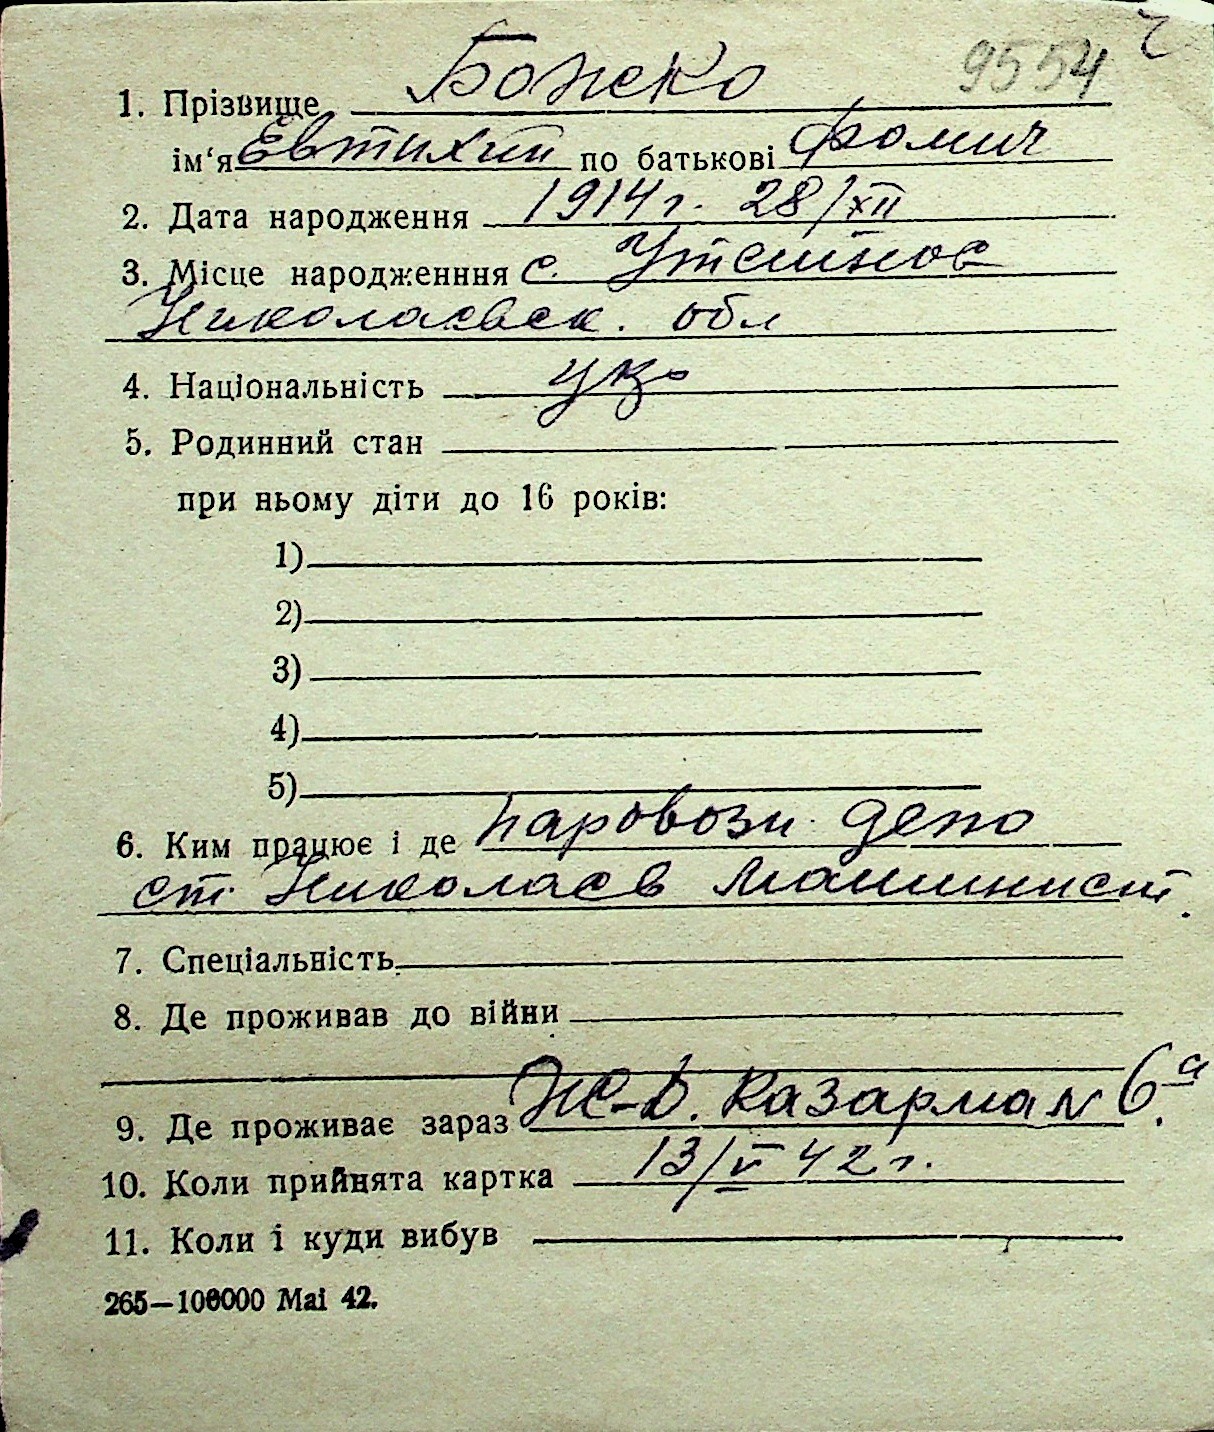 9554
1. Прізвище Божко
ім‘я Евтихий по батькові Фомич
2. Дата народження 1914 г. 28/XII
3. Місце народженння с. Утешное
Николаевск. обл
4. Національність укр
5. Родинний стан
при ньому діти до 16 років:
1)
2)
3)
4)
5)
6. Ким працює і де паровозн. депо
ст. Николаев машинист.
7. Спеціальність
8. Де проживав до війни
9. Де проживає зараз Ж-Д. Казарма № 6а.
10. Коли прийнята картка 13/V 42 г.
11. Коли і куди вибув
265—100000 Mai 42.